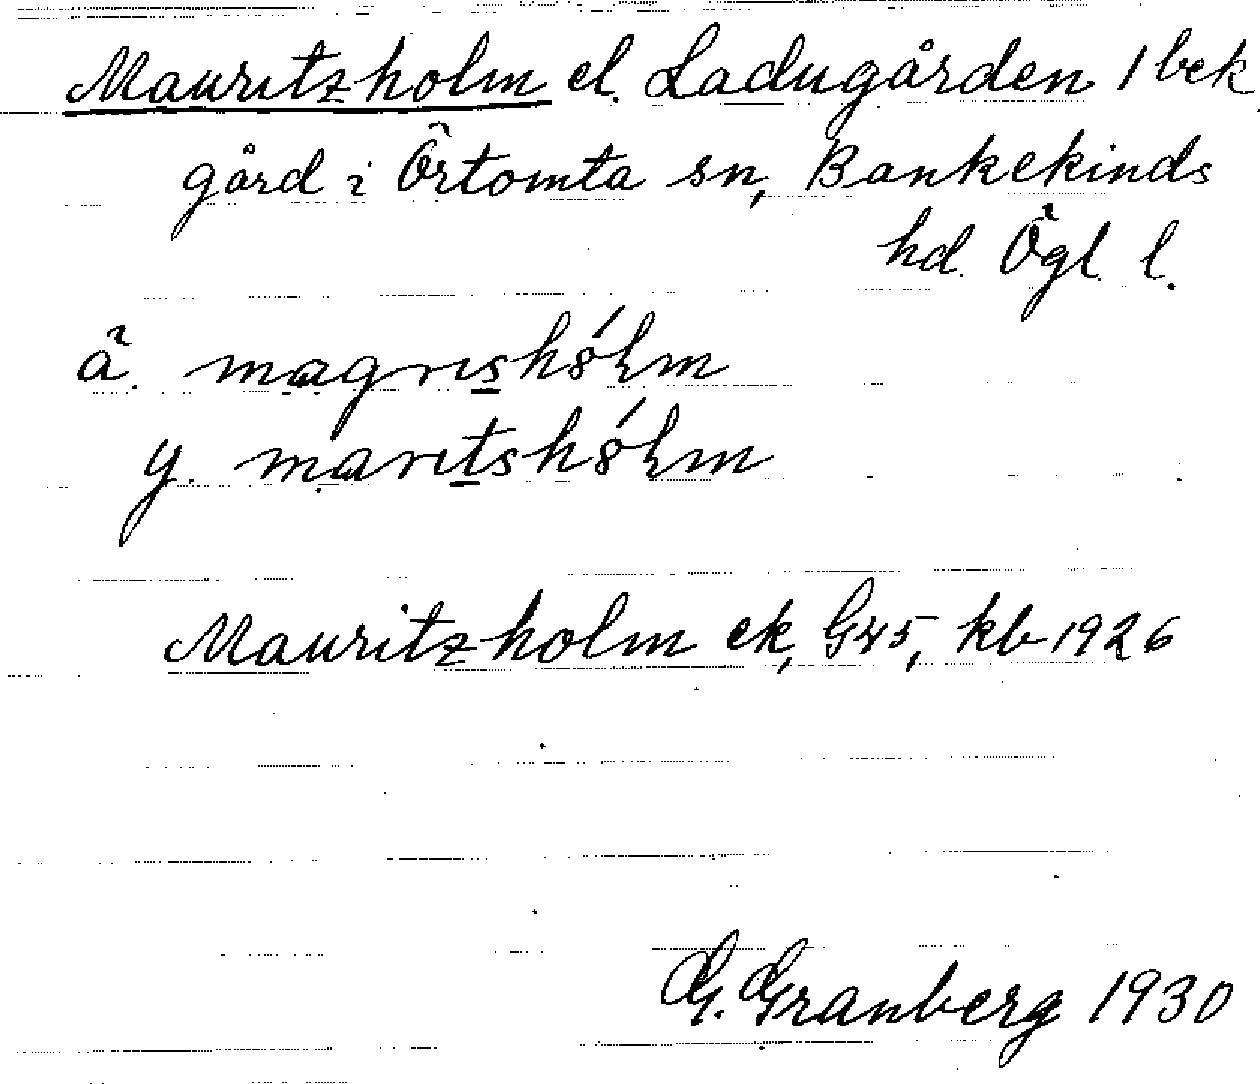 Mauritzholm el. Ladugården 1 bek
gård i Örtomta sn, Bankekinds
hd. Ögl. l.
ä. magrishólm
y. maritshólm
Mauritzholm ek, G45, kb 1926
G. Granberg 1930